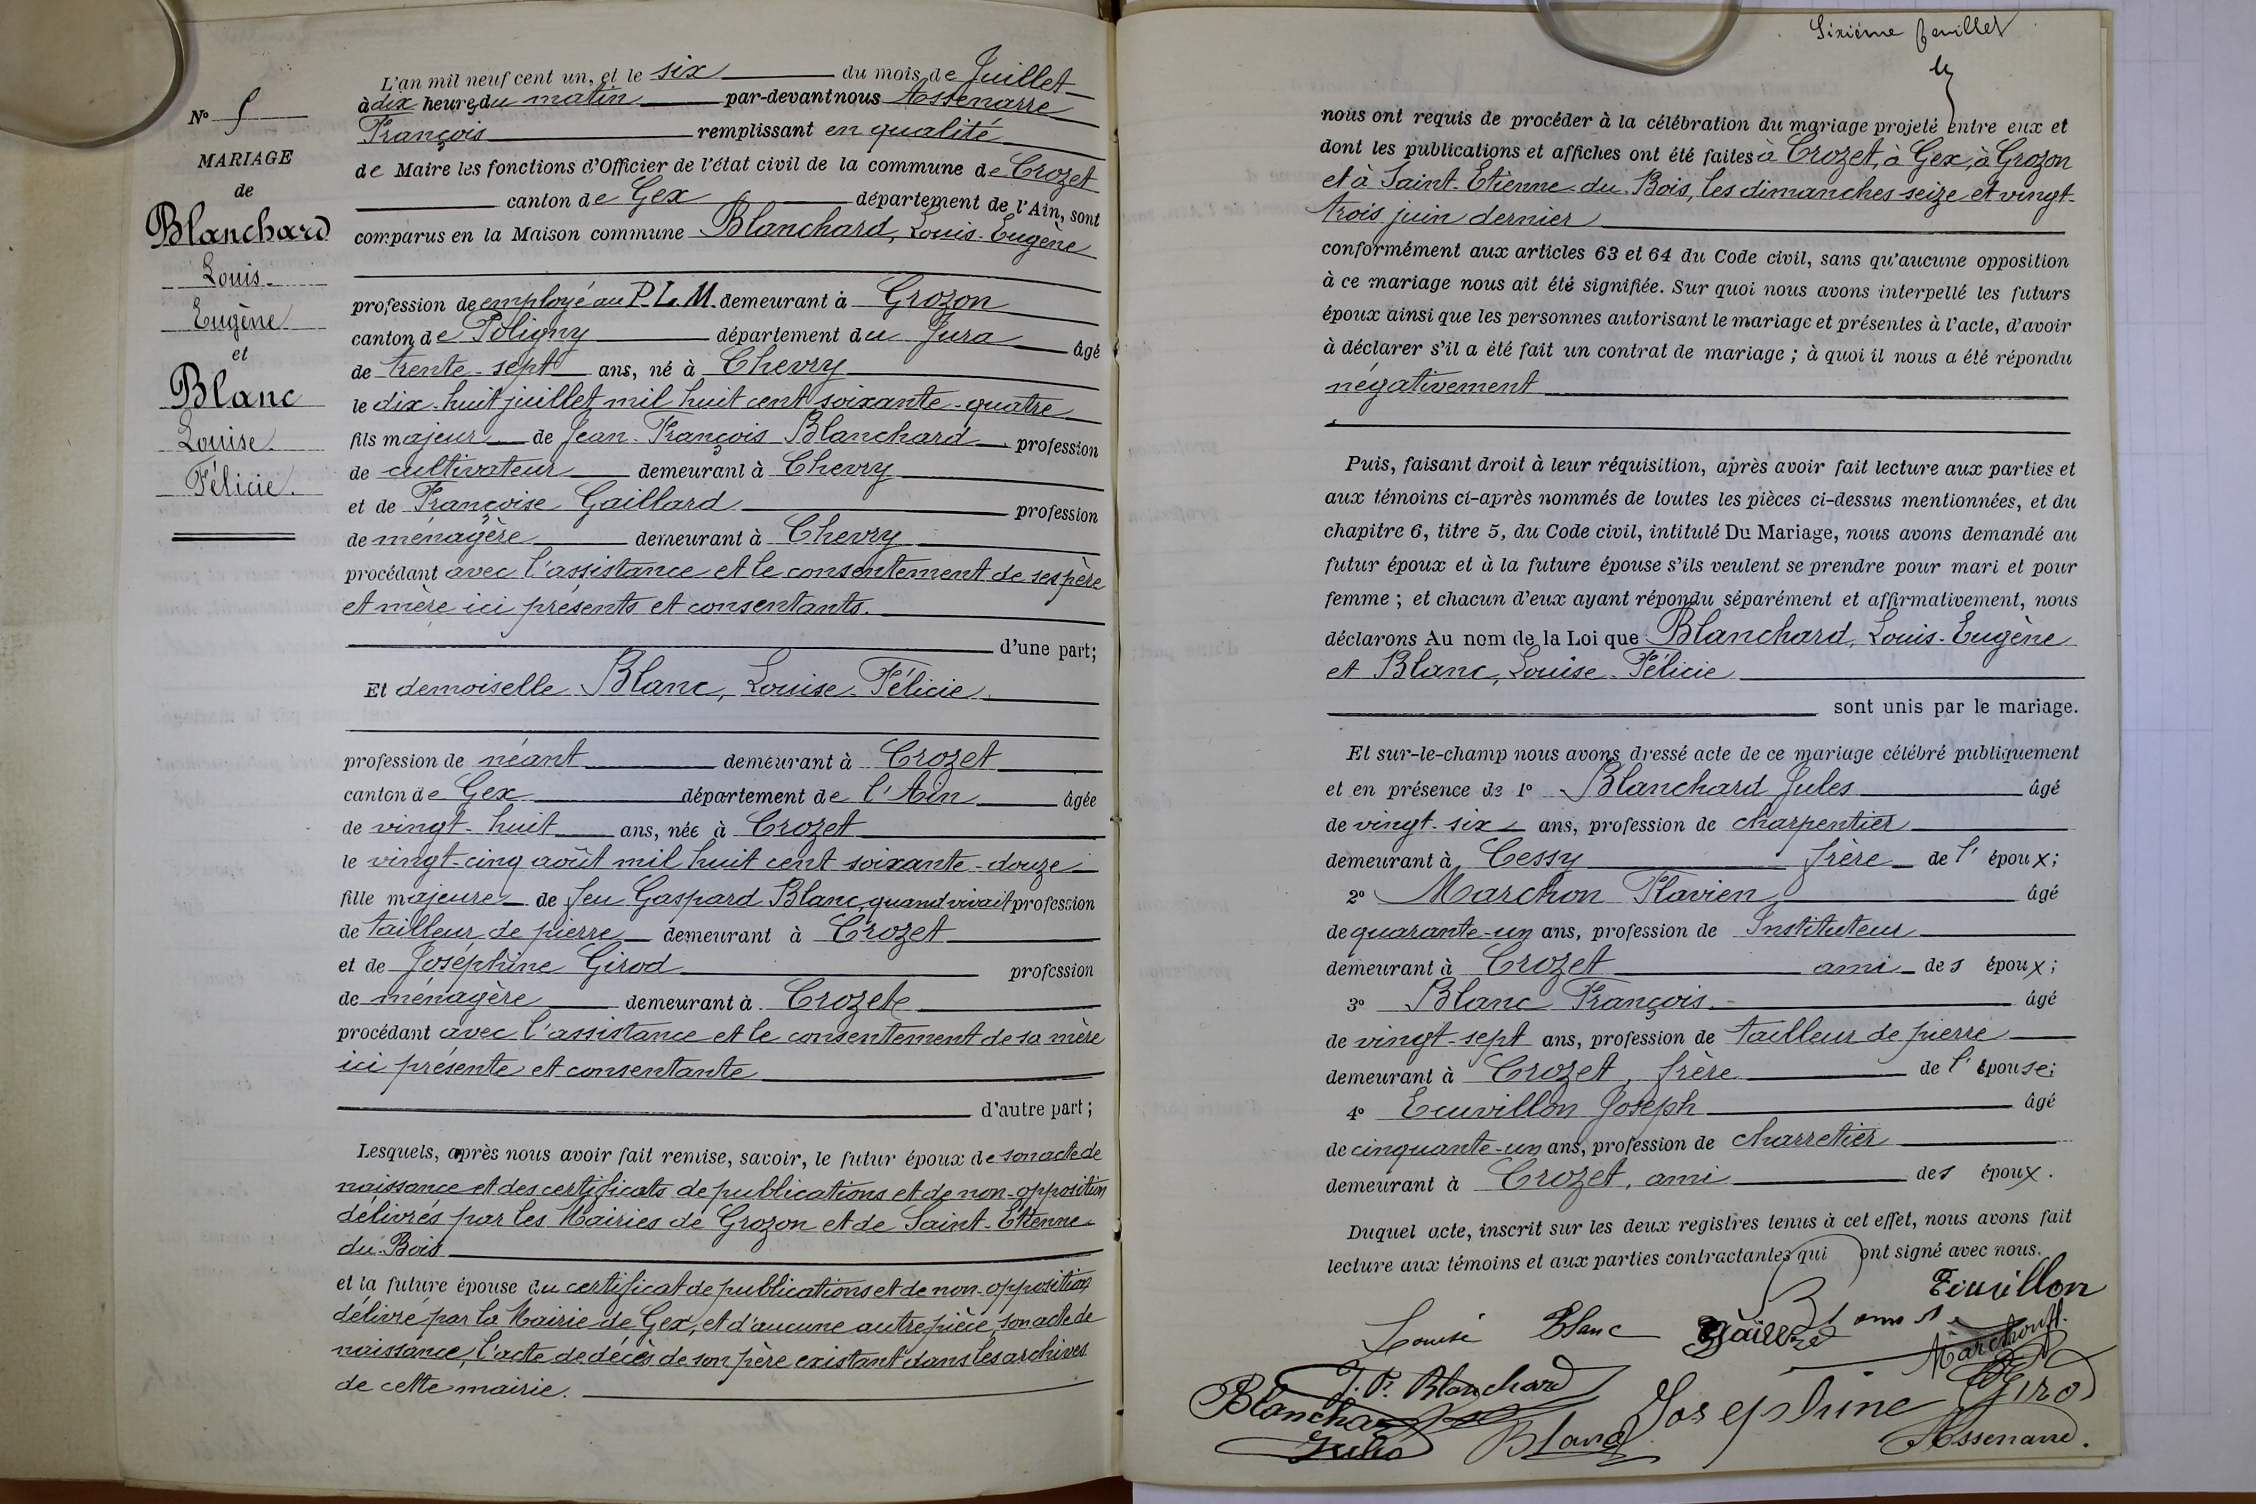 L'an mil neuf cent un, et le six du mois de Juillet
à dix heures du matin par-devant nous Assenarre
François remplissant en qualité
de Maire les fonctions d'Officier de l'état civil de la commune de Crozet
canton de Gex département de l'Ain, sont
comparus en la Maison commune Blanchard, Louis-Eugène
profession de employé au P.L.M. demeurant à Grozon
canton de Poligny département du Jura âgé
de trente-sept ans, né à Chevry
le dix-huit juillet mil huit cent soixante-quatre
fils majeur de Jean-François Blanchard profession
de cultivateur demeurant à Chevry
et de Françoise Gaillard profession
de ménagère demeurant à Chevry
procédant avec l'assistance et le consentement de ses père
et mère ici présents et consentants.
d'une part;
Et demoiselle Blanc, Louise-Félicie
profession de néant demeurant à Crozet
canton de Gex département de l'Ain âgée
de vingt-huit ans, née à Crozet
le vingt-cinq août mil huit cent soixante-douze
fille majeure de feu Gaspard Blanc, quand vivait profession
de tailleur de pierre demeurant à Crozet
et de Joséphine Girod profession
de ménagère demeurant à Crozet
procédant avec l'assistance et le consentement de sa mère
ici présente et consentante
d'autre part;
Lesquels, après nous avoir fait remise, savoir, le futur époux de son acte de
naissance et des certificats de publications et de non-opposition
délivrés par les Mairies de Grozon et de Saint-Etienne-
du-Bois
et la future épouse du certificat de publications et de non-opposition
délivré par la Mairie de Gex, et d'aucune autre pièce, son acte de
naissance, l'acte de décès de son père existant dans les archives
de cette mairie.
N° 5
MARIAGE
de
Blanchard
Louis-
Eugène
et
Blanc
Louise
Félicie.
Sixième feuillet
nous ont requis de procéder à la célébration du mariage projeté entre eux et
dont les publications et affiches ont été faites à Crozet, à Gex, à Grozon
et à Saint-Etienne-du-Bois, les dimanches seize et vingt-
trois juin dernier
conformément aux articles 63 et 64 du Code civil, sans qu'aucune opposition
à ce mariage nous ait été signifiée. Sur quoi nous avons interpellé les futurs
époux ainsi que les personnes autorisant le mariage et présentes à l'acte, d'avoir
à déclarer s'il a été fait un contrat de mariage ; à quoi il nous a été répondu
négativement
Puis, faisant droit à leur réquisition, après avoir fait lecture aux parties et
aux témoins ci-après nommés de toutes les pièces ci-dessus mentionnées, et du
chapitre 6, titre 5, du Code civil, intitulé Du Mariage, nous avons demandé au
futur époux et à la future épouse s'ils veulent se prendre pour mari et pour
femme ; et chacun d'eux ayant répondu séparément et affirmativement, nous
déclarons Au nom de la Loi que Blanchard, Louis-Eugène
et Blanc, Louise-Félicie
sont unis par le mariage.
Et sur-le-champ nous avons dressé acte de ce mariage célébré publiquement
et en présence de 1° Blanchard Jules âgé
de vingt-six ans, profession de charpentier
demeurant à Cessy frère de l'époux;
2° Marchon Flavien âgé
de quarante-un ans, profession de Instituteur
demeurant à Crozet ami des époux;
3° Blanc François âgé
de vingt-sept ans, profession de tailleur de pierre
demeurant à Crozet, frère de l'épouse;
4° Ecuvillon Joseph âgé
de cinquante-un ans, profession de charretier
demeurant à Crozet, ami des époux.
Duquel acte, inscrit sur les deux registres tenus à cet effet, nous avons fait
lecture aux témoins et aux parties contractantes qui ont signé avec nous.
Ecuvillon
Louise Blanc
J. F. Blanchard
Blanchard
Jules
Blanc
Josephine Girod
Assenarre.